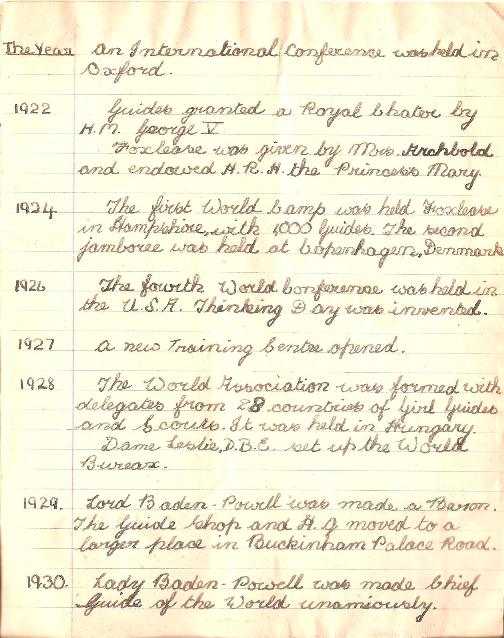 The Year an International Conference was held in
Oxford.
1922 Guides granted a Royal Chater by
H.M. George V
Foxlease was given by Mrs. Archbold
and endowed H.R.H. the Princess Mary.
1924 The first World Camp was held Foxlease
in Hampshire, with 1,000 Guides. The second
jamboree was held at Copenhagen, Denmark
1926 The fourth World Conference was held in
the U.S.A. Thinking Day was invented.
1927 a new Training Centre opened.
1928 The World Association was formed with
delegates from 28 countries of Girl Guides
and Scouts. It was held in Hungary.
Dame Leslie, D.B.E. set up the World
Bureax.
1929. Lord Baden-Powell was made a Baron.
The Guide Shop and H.Q moved to a
larger place in Buckinham Palace Road.
1930. Lady Baden-Powell was made Chief
Guide of the World unamiously.